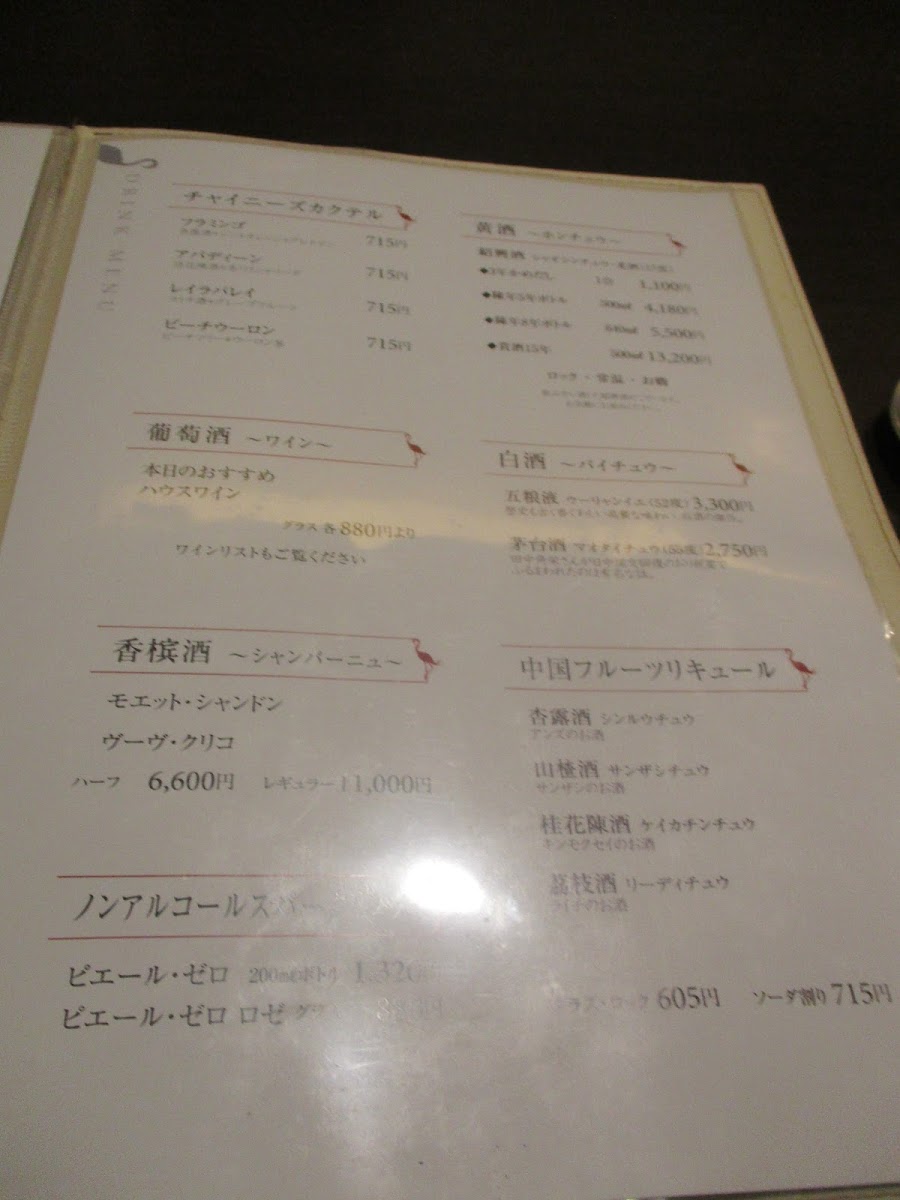 DRINK MENU
チャイニーズカクテル
フラミンゴ
715円
アバディーン
715円
レイラバレイ
715円
ピーチウーロン
ピーチツリー＋ウーロン茶
715円
葡萄酒 〜ワイン〜
本日のおすすめ
ハウスワイン
グラス 各880円より
ワインリストもご覧ください
香槟酒 〜シャンパーニュ〜
モエット・シャンドン
ヴーヴ・クリコ
ハーフ 6,600円 レギュラー 11,000円
ノンアルコールスパー
ピエール・ゼロ 200mlボトル 1,320
ピエール・ゼロ ロゼ
黄酒 〜ホンチュウ〜
紹興酒
◆3年かめだし 1合 1,100円
◆陳年5年ボトル 500ml 4,180円
◆陳年8年ボトル 640ml 5,500円
◆貴酒15年 500ml 13,200円
ロック・常温・お燗
白酒 〜パイチュウ〜
五粮液 ウーリャンイエ(52度) 3,300円
茅台酒 マオタイチュウ(55度) 2,750円
中国フルーツリキュール
杏露酒 シンルウチュウ
アンズのお酒
山楂酒 サンザシチュウ
サンザシのお酒
桂花陳酒 ケイカチンチュウ
キンモクセイのお酒
荔枝酒 リーディチュウ
ライチのお酒
グラス・ロック 605円 ソーダ割り 715円